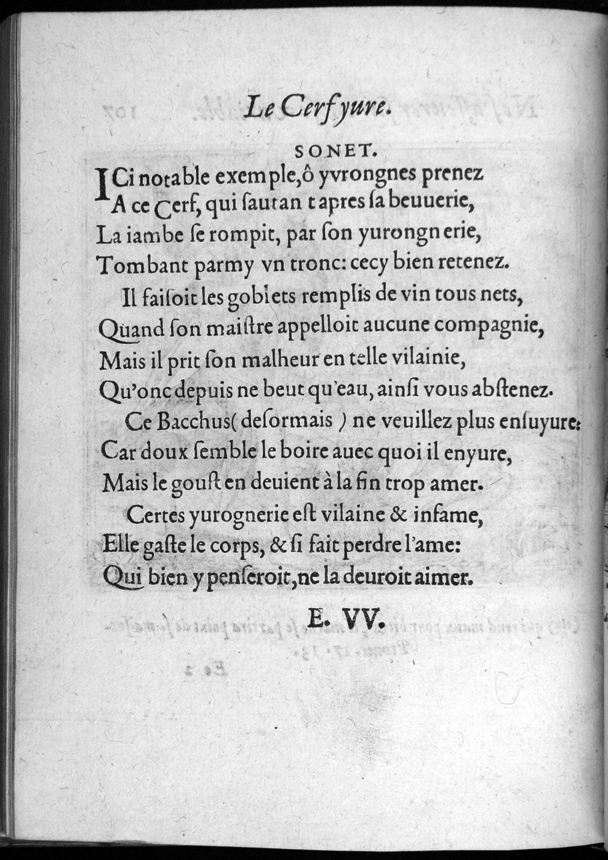 Le Cerf yure.
SONET.
ICi notable exemple,ô yvrongnes prenez
A ce Cerf, qui ſautan t apres ſa beuuerie,
La iambe ſe rompit, par ſon yurongnerie,
Tombant parmy vn tronc: cecy bien retenez.
Il faiſoit les goblets remplis de vin tous nets,
Quand ſon maiſtre appelloit aucune compagnie,
Mais il prit ſon malheur en telle vilainie,
Qu'onc depuis ne beut qu'eau, ainſi vous abſtenez.
Ce Bacchus( deſormais ) ne veuillez plus enſuyure:
Car doux ſemble le boire auec quoi il enyure,
Mais le gouſt en deuient à la fin trop amer.
Certes yurognerie eſt vilaine & infame,
Elle gaſte le corps, & ſi fait perdre l'ame:
Qui bien y penſeroit,ne la deuroit aimer.
E. VV.